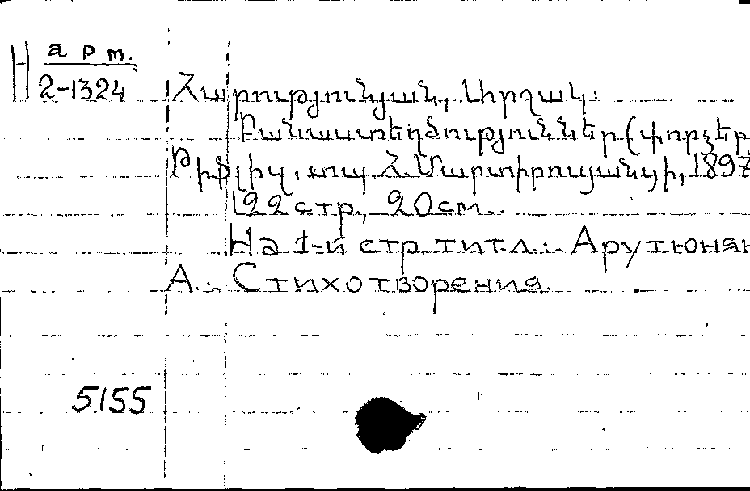 Н арт.
2-1324
Հարությունյան, Միրզակ.
Բանաստեղծություններ (փորձեր
Թիֆլիզ, տպ Հ. Մարտիրոսյանցի, 1897
22 стр., 20 cm.
На 1-й стр. титл.: Арутюнян
А. Стихотворения.
5155